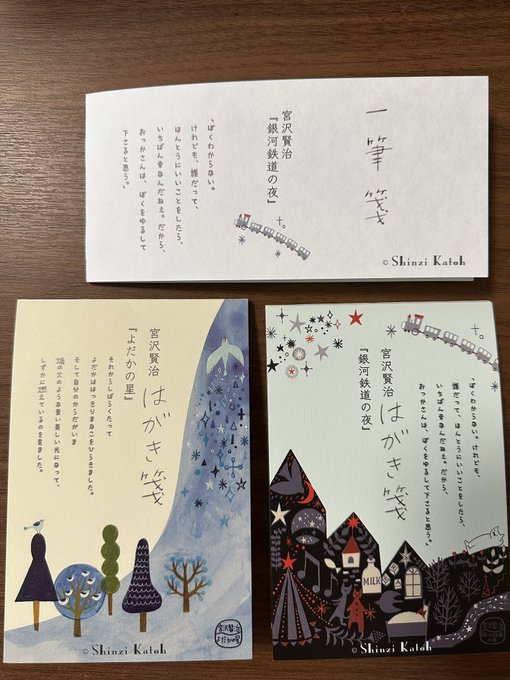 一筆箋
宮沢賢治
『銀河鉄道の夜』
「ぼくわからない。
けれども、誰だって、
ほんとうにいいことをしたら、
いちばん幸なんだねえ。だから、
おっかさんは、ぼくをゆるして
下さると思う。」
© Shinzi Katoh
宮沢賢治
『よだかの星』
はがき箋
それからしばらくたって
よだかははっきりまなこをひらきました。
そして自分のからだがいま
燐の火のような青い美しい光になって、
しずかに燃えているのを見ました。
宮沢賢治
よだかの星
© Shinzi Katoh
宮沢賢治
『銀河鉄道の夜』
はがき箋
「ぼくわからない。けれども、
誰だって、ほんとうにいいことをしたら、
いちばん幸なんだねえ。だから、
おっかさんは、ぼくをゆるして下さると思う。」
MILK
© Shinzi Katoh